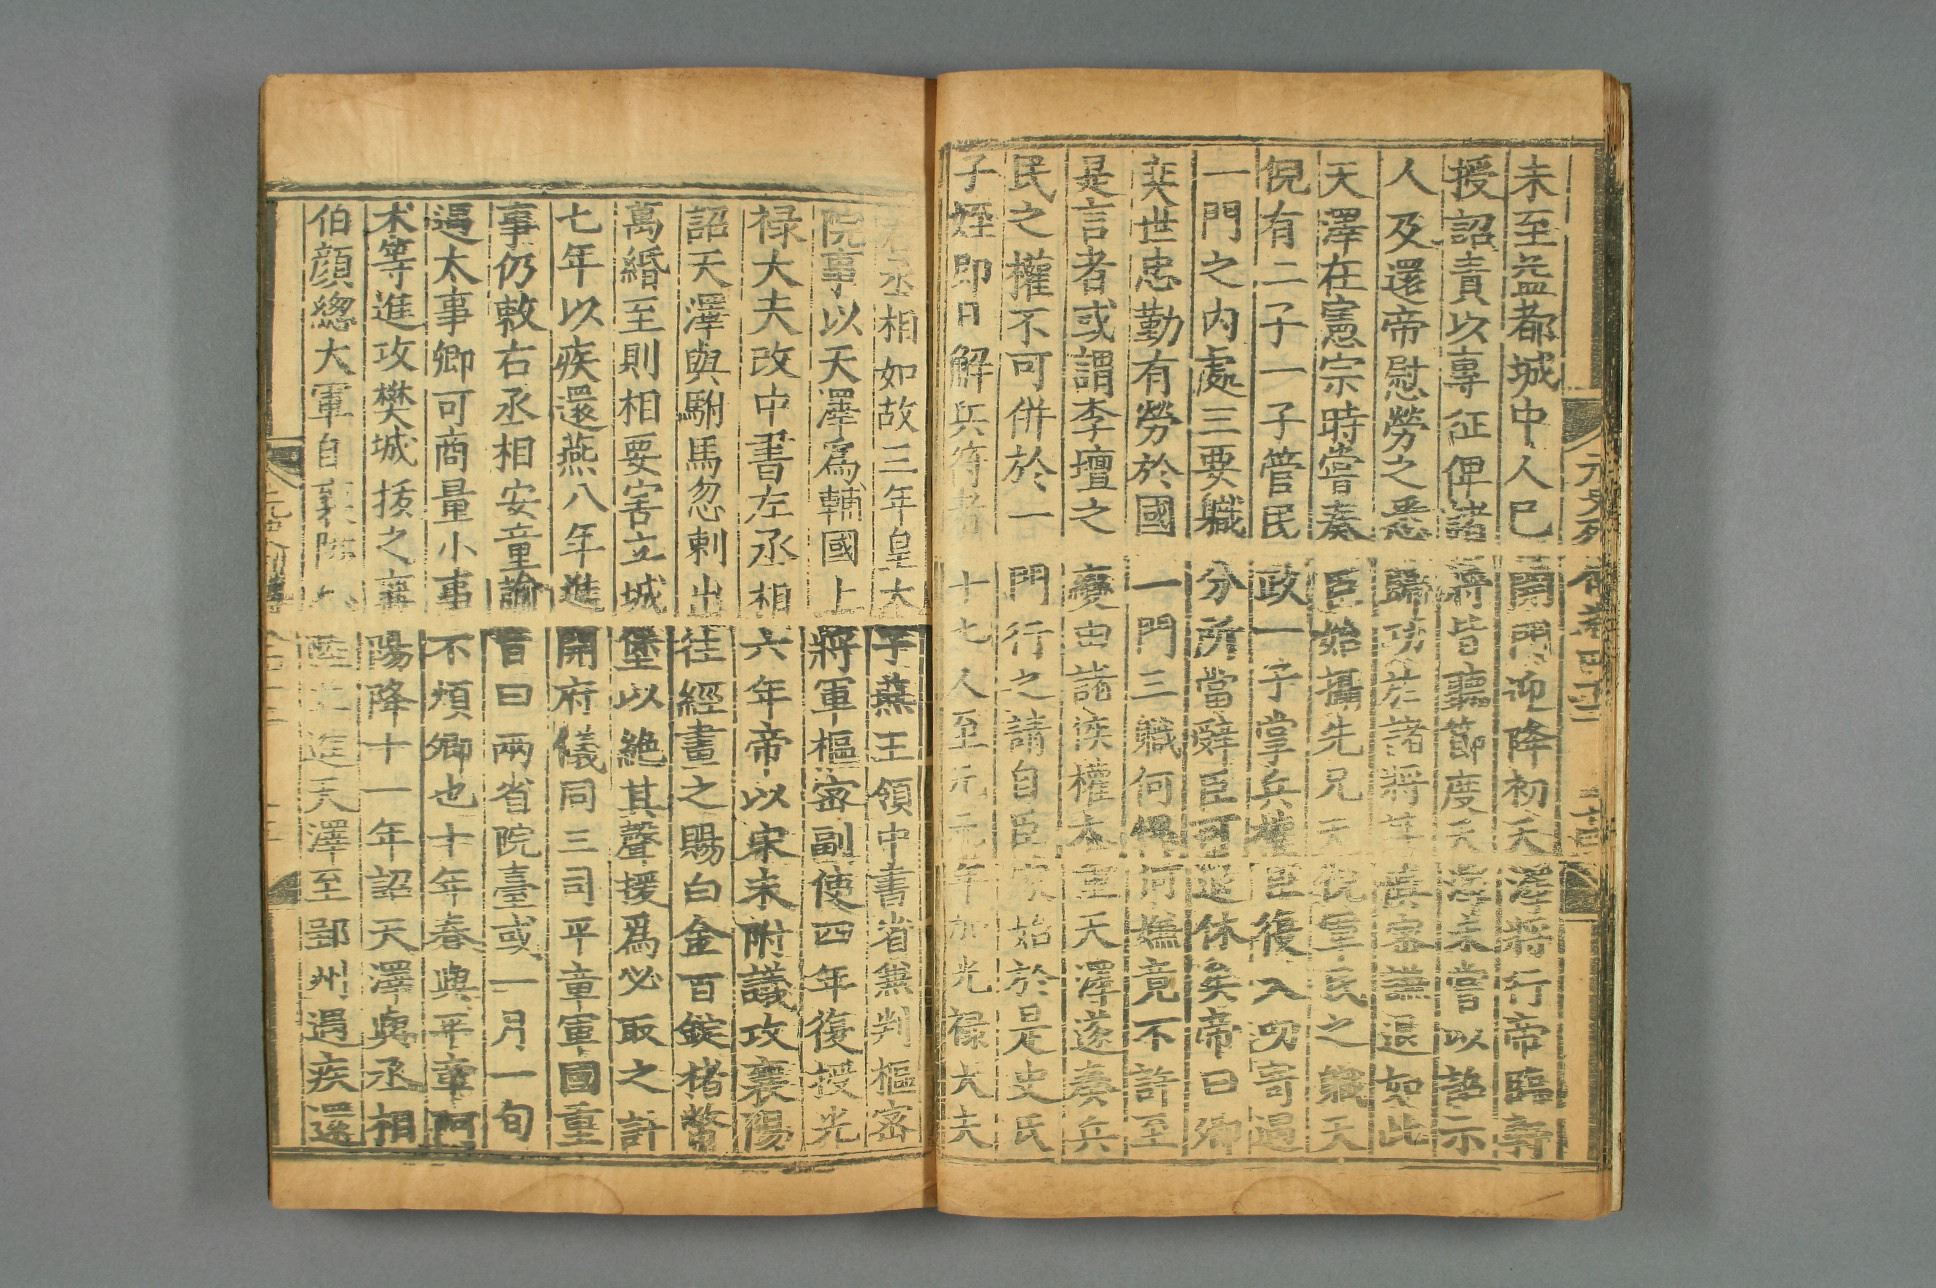 未至益都城中人已開門迎降初天澤將行帝臨軒
授詔責以專征俾諸將皆聽節度天澤未嘗以詔示
人及還帝慰勞之悉歸功於諸將其慎密謙退如此
天澤在憲宗時嘗奏臣始攝先兄天倪軍民之職天
倪有二子一子管民政一子掌兵權臣復入叨寄遇
一門之內處三要職分所當辭臣可退休矣帝曰卿
奕世忠勤有勞於國一門三職何愧何嫌竟不許至
是言者或謂李壇之變由諸侯權太重天澤遂奏兵
民之權不可併於一門行之請自臣家始於是史氏
子姪即日解兵符者十七人至元元年加光禄大夫
右丞相如故三年皇太子燕王領中書省兼判樞密
院事以天澤爲輔國上將軍樞密副使四年復授光
禄大夫改中書左丞相六年帝以宋未附議攻襄陽
詔天澤與駙馬忽剌出往經畫之賜白金百錠楮幣
萬緡至則相要害立城堡以絶其聲援爲必取之計
七年以疾還燕八年進開府儀同三司平章軍國重
事仍敕右丞相安童諭旨曰兩省院臺或一月一旬
遇大事卿可商量小事不煩卿也十年春與平章阿
术等進攻樊城拔之襄陽降十一年詔天澤與丞相
伯顔緫大軍自襄陽水陸並進天澤至郢州遇疾還
元史列傳卷四十二